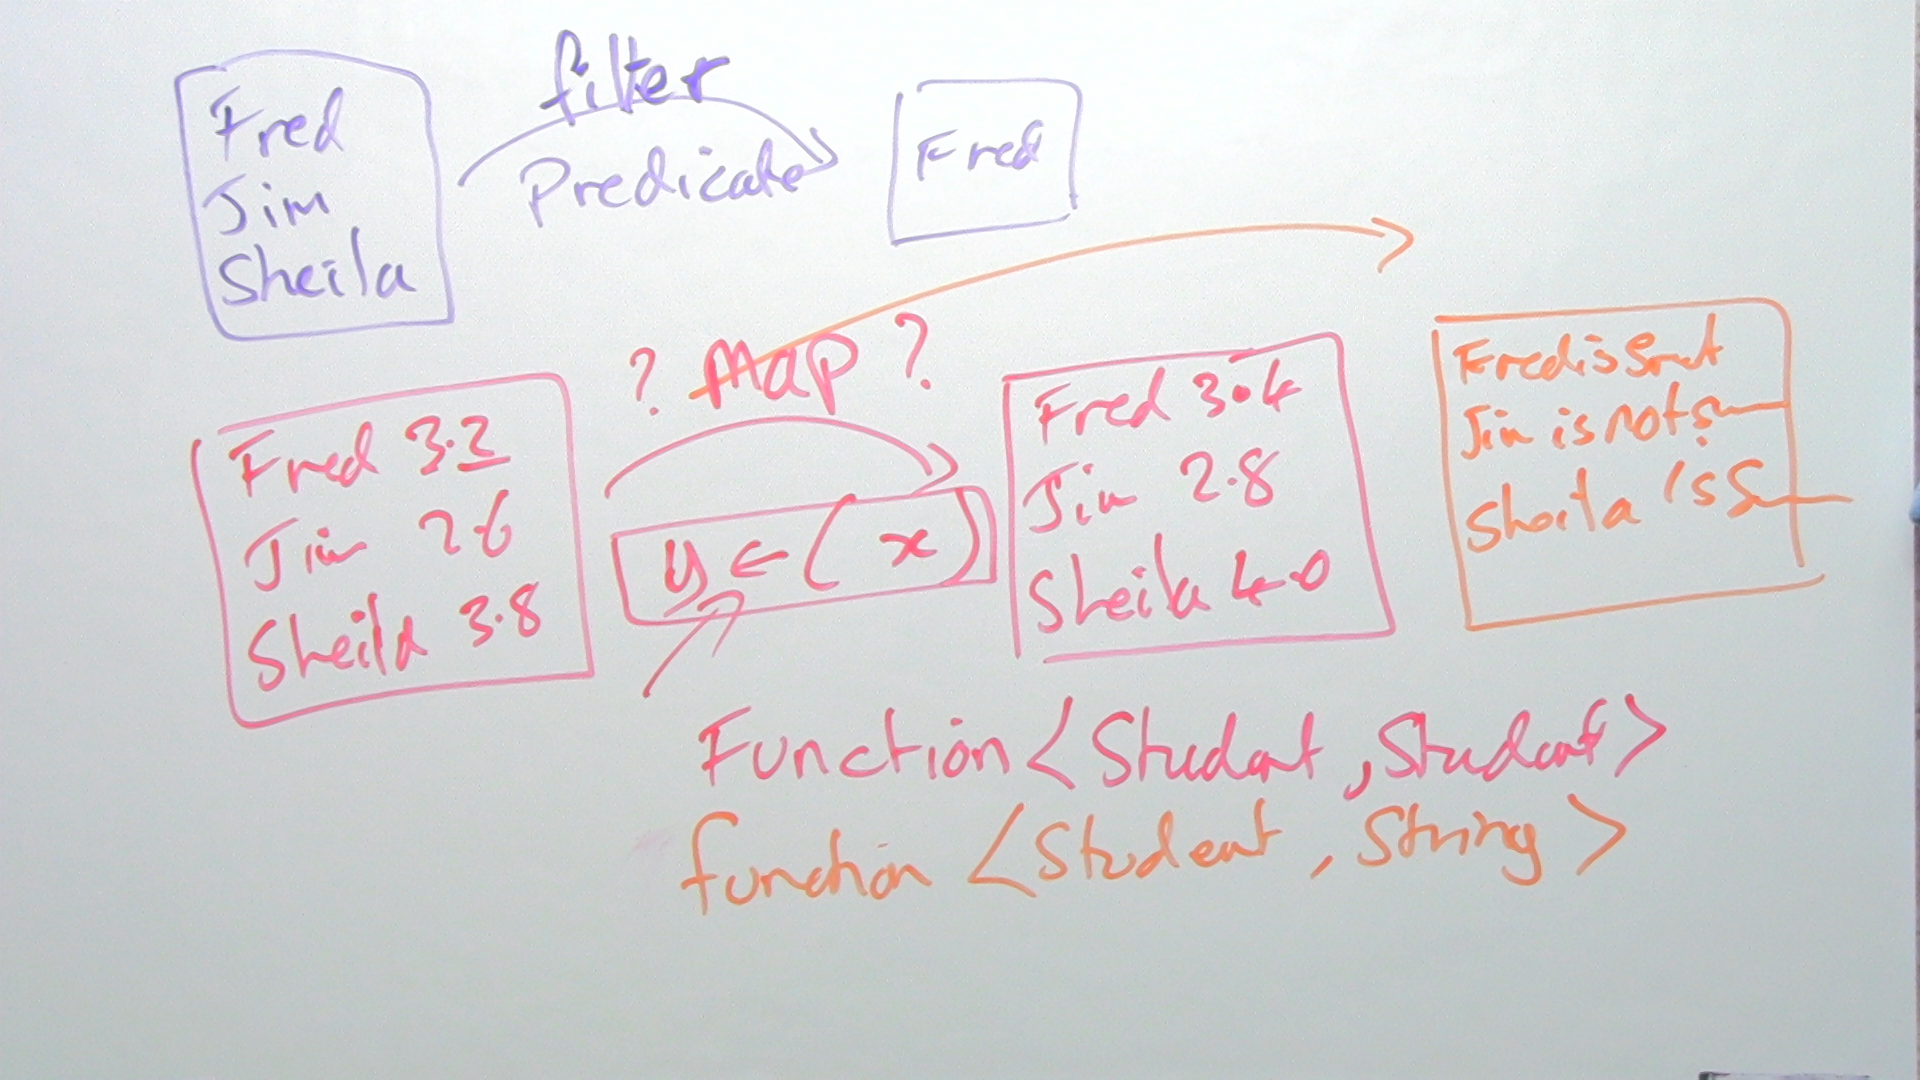 Fred
Jim
Sheila
filter
Predicate
Fred
? Map ?
Fred 3.2
Jim 2.6
Sheila 3.8
y ← ( x )
Fred 3.4
Jim 2.8
Sheila 4.0
Fred is Smrt
Jim is not
Sheila is
Function <Student, Student>
function <Student, String>